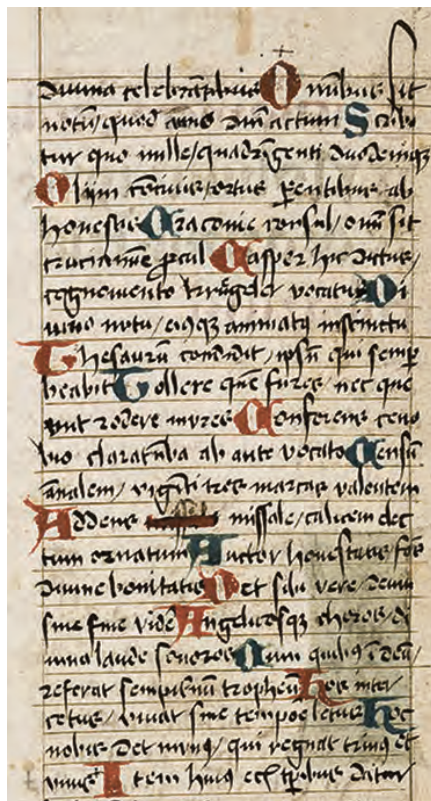 diuina celebrantibus Omnibus sit
notum / quod anno dum actum Scribi
tur quo mille / quadringenti duodecimque
Olim conciuis / ortus parentibus ab
honestis Cracouie consul / omne sit
procul Casper hic dictus /
cognomento vocatus Di
uino notu / eiusque animatus instinctu
Thesaurum condidit / ipsum qui semper
beabit Tollere quem fures / nec que
unt rodere mures Conferens ceno
bio claratumba ab ante vocato Censum
annalem / viginti tres marcas valentem
Addens missale / calicem
tum ornatum Auctor honestatis fons
diuine bonitatis Det sibi vere / deum
sine fine videre Angelicosque choros / di
uina laude sonoros Cum quibus
referat sempiternum tropheum Hos inter
cetus / viuat sine tempore letus Hoc
nobis det munus / qui regnat trinus et
vnus Item huius datur